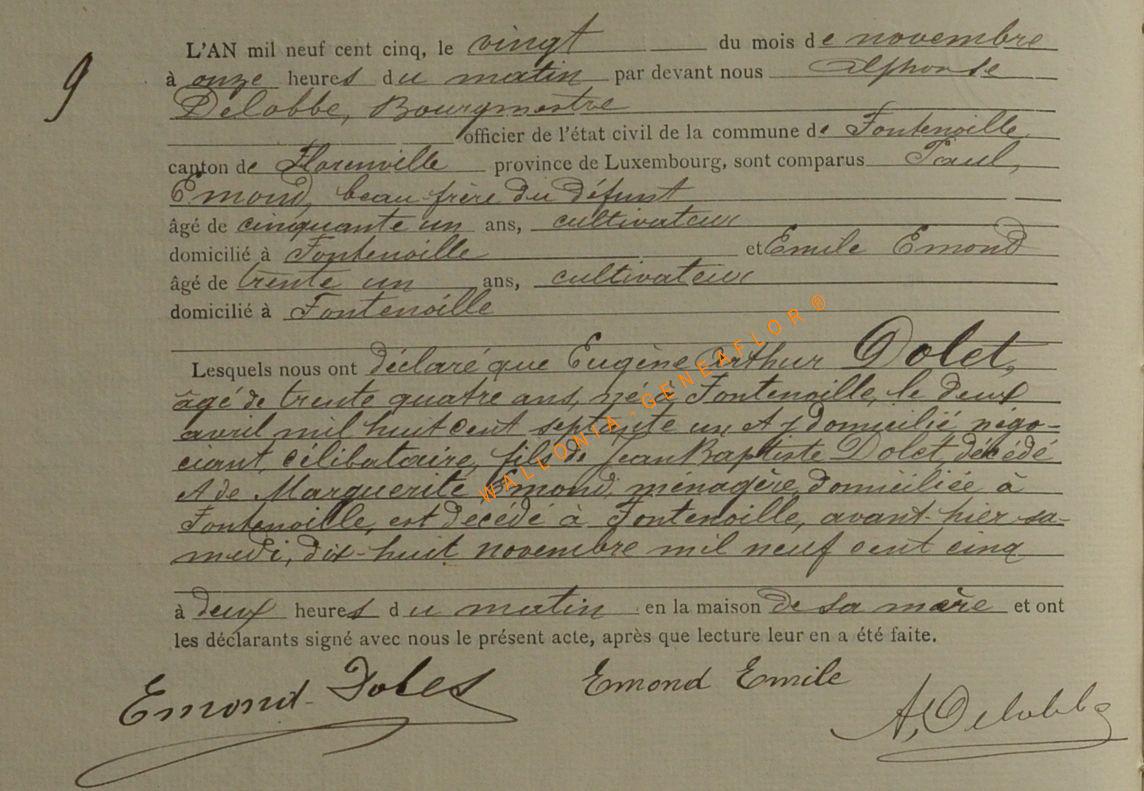 9
L'AN mil neuf cent cinq, le vingt du mois de novembre
à onze heures du matin par devant nous Alphonse
Delobbe, Bourgmestre
officier de l'état civil de la commune de Fontenoille
canton de Florenville province de Luxembourg, sont comparus Paul,
Emond, beau-frère du défunt
âgé de cinquante un ans, cultivateur
domicilié à Fontenoille et Emile Emond
âgé de trente un ans, cultivateur
domicilié à Fontenoille
Lesquels nous ont déclaré que Eugène Arthur Dolet,
âgé de trente quatre ans, né à Fontenoille, le deux
avril mil huit cent septante un & y domicilié négo-
ciant, célibataire, fils de Jean Baptiste Dolet, décédé
& de Marguerite Emond, ménagère domiciliée à
Fontenoille, est décédé à Fontenoille, avant-hier sa-
medi, dix-huit novembre mil neuf cent cinq
à deux heures du matin en la maison de sa mère et ont
les déclarants signé avec nous le présent acte, après que lecture leur en a été faite.
Emond Emond Emile
A. Delobbe
WALLONIA-GENEAFLOR®